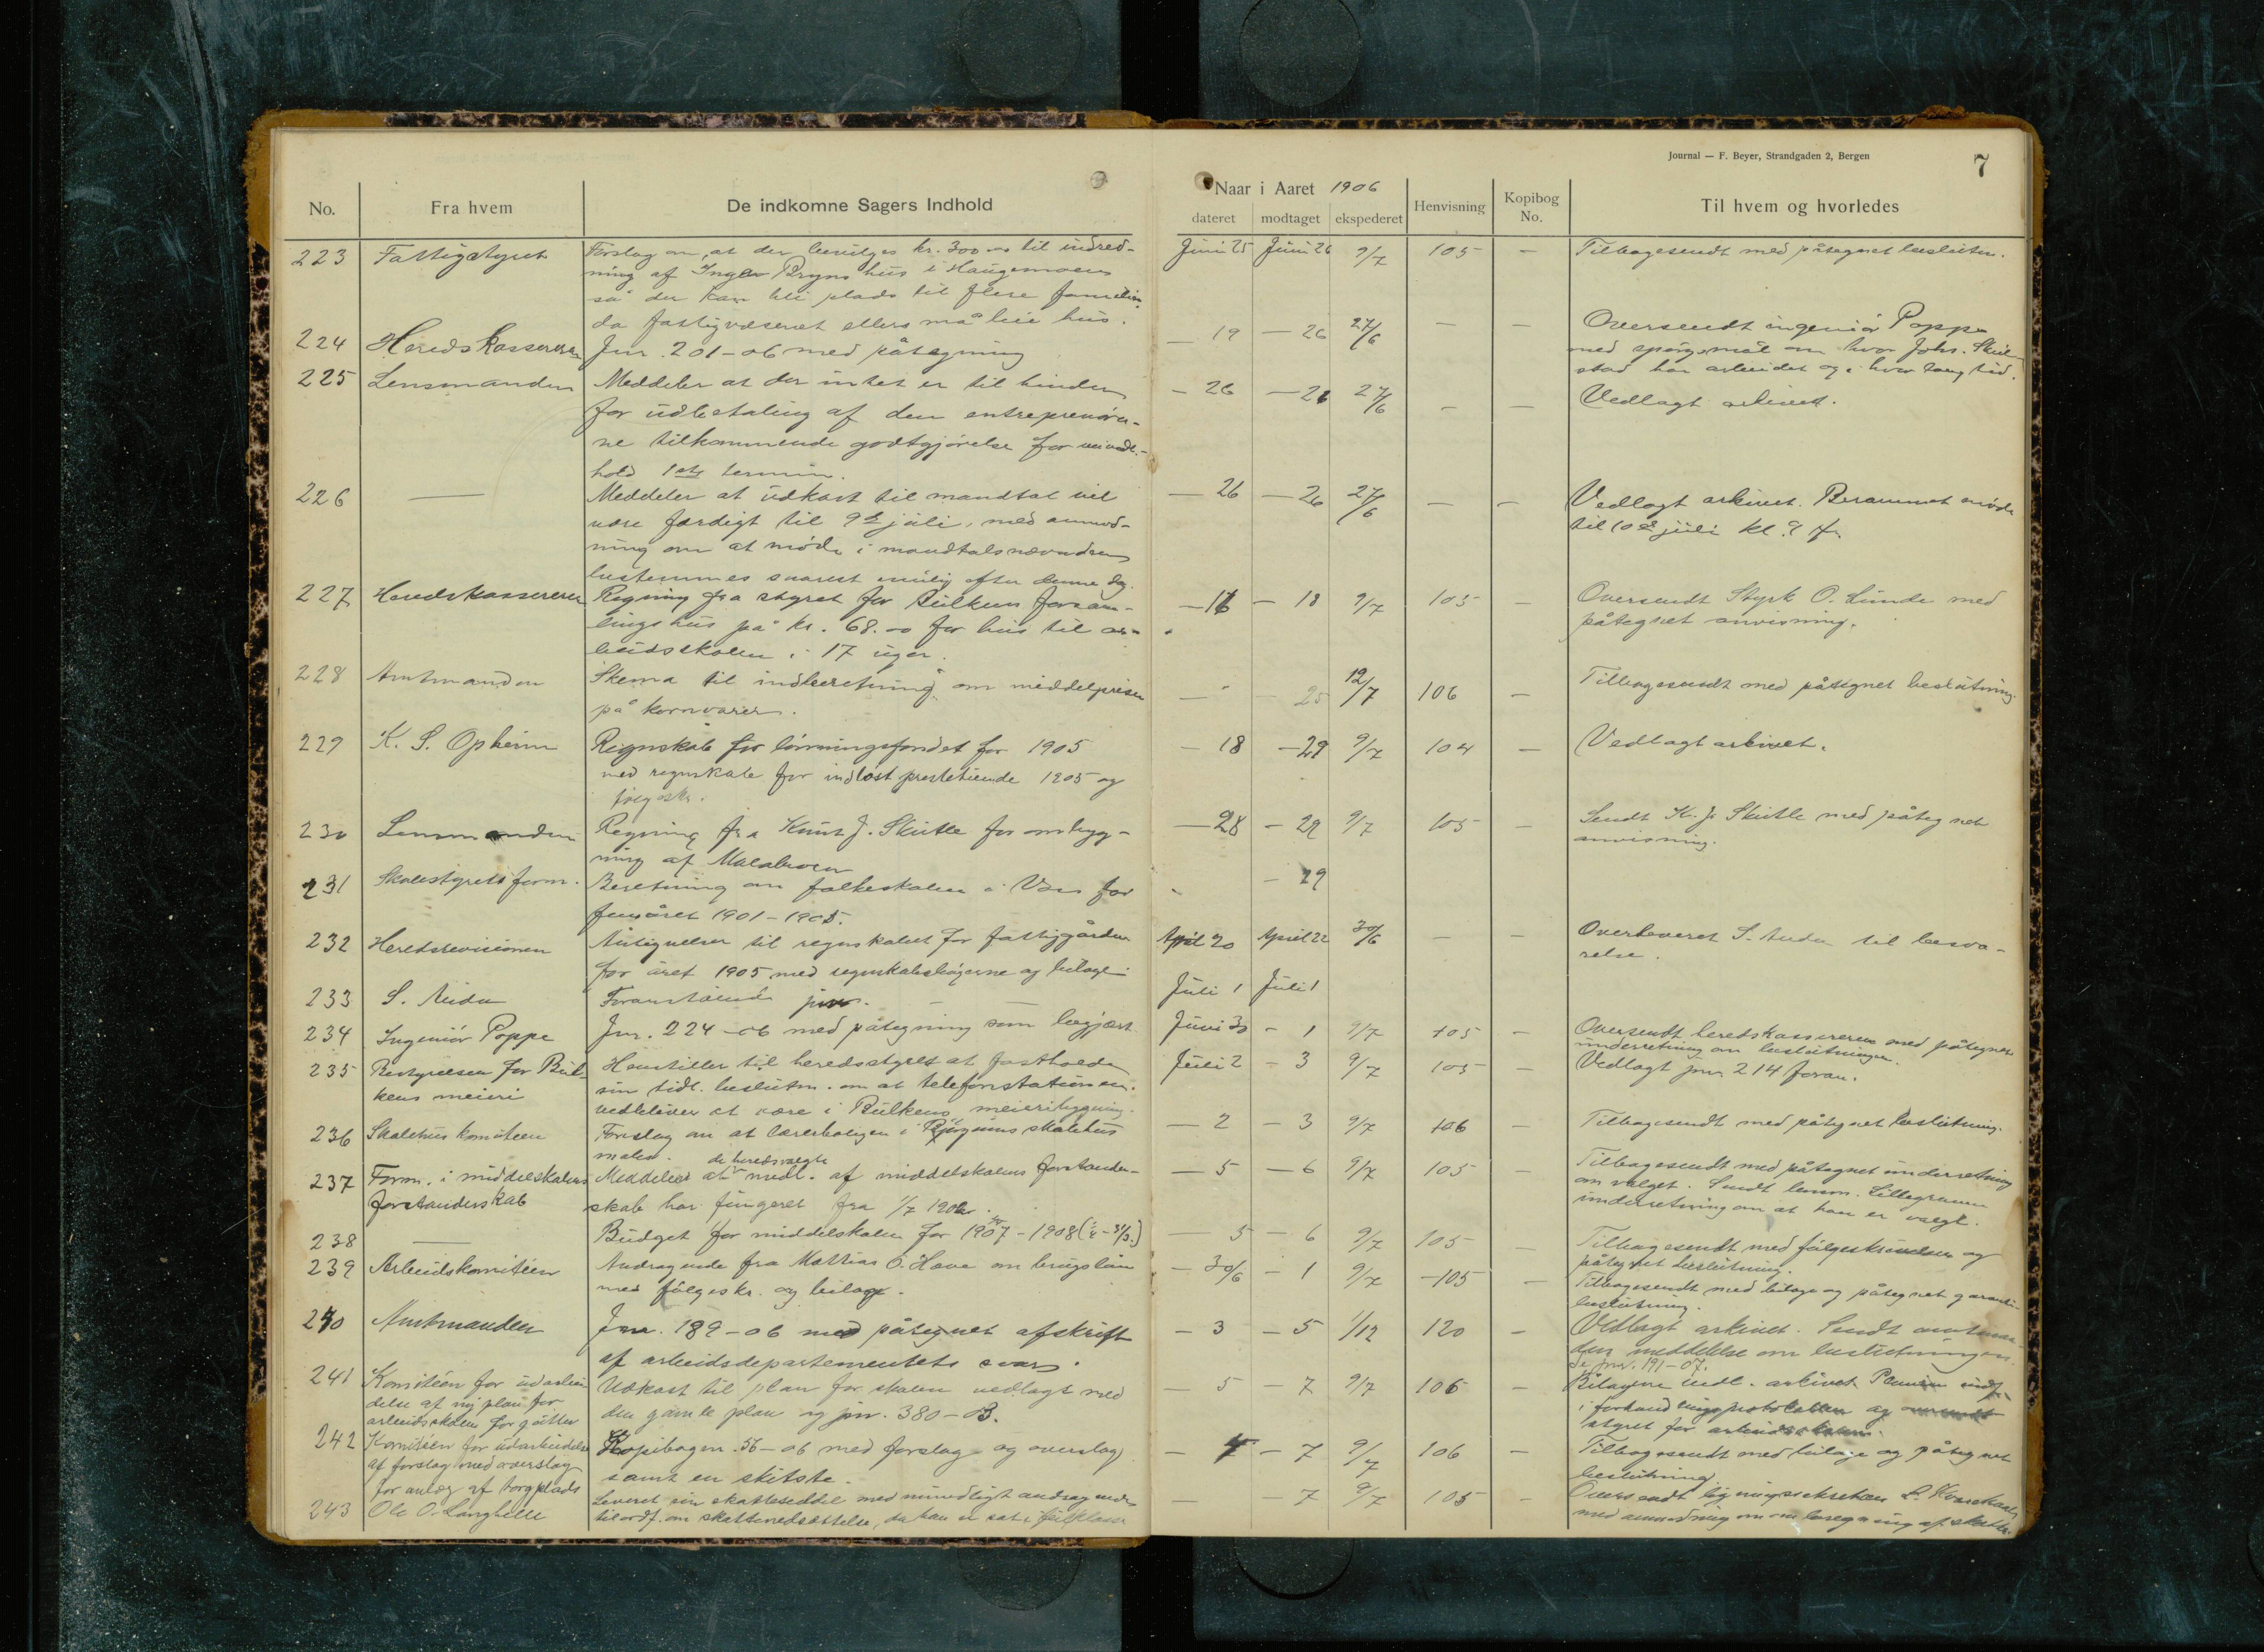 Journal — F. Beyer, Strandgaden 2, Bergen
7
No.
Fra hvem
De indkomne Sagers Indhold
Naar i Aaret 1906
dateret
modtaget
ekspederet
Henvisning
Kopibog No.
Til hvem og hvorledes
223 Fattigstyret Forslag om, at der bevilges kr. 300.00 til indred- Juni 25 Juni 26 9/7 105 — Tilbagesendt med påtegnet beslutn.
ning af Bryns hus i Haugamoen
så der kan bli plads til flere familier,
da fattigvæsenet ellers må leie hus.
224 Heredskassereren Jnr. 201-06 med påtegning — 19 — 26 27/6 — — Oversendt ingeniør Poppe
med spørgsmål om hvor Johs.
stad har arbeidet og i hvor lang tid.
225 Lensmanden Meddeler at der intet er til hinder — 26 — 26 27/6 — — Vedlagt arkivet.
for udbetaling af den entreprenører-
ne tilkommende godtgjørelse for veivedl.-
hold 1ste termin.
226 — Meddeler at udkast til mandtal vil — 26 — 26 27/6 — — Vedlagt arkivet. Berammet møde
være færdigt til 9de juli, med anmod- til 10de juli kl. 9 f.
ning om at møde i mandtalsnævnden
bestemmes snarest mulig efter denne dag.
227 Heredskassereren Regning fra styret for Bulkens forsam- — 16 — 18 9/7 105 — Oversendt Styrk O. Lunde med
lingshus på kr. 68.00 for hus til ar- påtegnet anvisning.
beidsskolen i 17 uger.
228 Amtmanden Skema til indberetning om middelprisen — " — 25 12/7 106 — Tilbagesendt med påtegnet beslutning.
på kornvarer.
229 K. S. Opheim Regnskab for lønningsfondet for 1905 — 18 — 29 9/7 104 — Vedlagt arkivet.
med regnskab for indløst prestetiende 1905 og
følgeskr.
230 Lensmanden Regning fra Knut J. Skutle for ombyg- — 28 — 29 9/7 105 — Sendt K. J. Skutle med påtegnet
ning af anvisning.
231 Skolestyrets form. Beretning om folkeskolen i Voss for — 29
femåret 1901-1905.
232 Heredsrevisionen Antegnelser til regnskabet for fattiggården April 20 April 22 30/6 — — Overleveret S. Auda til besva-
for året 1905 med regnskabsbøgerne og bilage relse.
233 S. Auda Foranstående jnr. Juli 1 Juli 1
234 Ingeniør Poppe Jnr. 224-06 med påtegning som begjært Juni 30 — 1 9/7 105 — Oversendt heredskassereren med påtegnet
underretning om beslutningen.
235 Bestyrelsen for Bul- Henstiller til heredsstyret at fastholde Juli 2 — 3 9/7 105 — Vedlagt jnr. 214 foran.
kens meieri sin tidl. beslutn. om at telefonstationen
vedbliver at være i Bulkens meieribygning.
236 Skolehuskomiteen Forslag om at lærerboligen i Bjørgums skolehus — 2 — 3 9/7 106 — Tilbagesendt med påtegnet beslutning.
males.
237 Form. i middelskolens Meddeler at de heredsvalgte medl. af middelskolens forstander- — 5 — 6 9/7 105 — Tilbagesendt med påtegnet underretning
forstanderskab skab har fungeret fra 1/7 om valget. Sendt lensm. Lillegraven
underretning om at han er valgt.
238 — Budget for middelskolen for 1907-1908 — 5 — 6 9/7 105 — Tilbagesendt med følgeskrivelse og
påtegnet beslutning.
239 Arbeidskomitéen Andragende fra Mattias O. Hove om brugslån — 30/6 — 1 9/7 — 105 — Tilbagesendt med bilage og påtegnet garanti-
med følgeskr. og bilage. beslutning.
240 Amtmanden Jnr. 189-06 med påtegnet afskrift — 3 — 5 1/12 120 — Vedlagt arkivet. Sendt amtman-
af arbeidsdepartementets svar. den meddelelse om beslutningen.
Se jnr. 191-07.
241 Komitéen for udarbei- Udkast til plan for skolen vedlagt med — 5 — 7 9/7 106 — Bilagene vedl. arkivet. Planen indf.
delse af ny plan for den gamle plan og jnr. 380-03. i forhandlingsprotokollen og oversendt
arbeidsskolen for gutter styret for arbeidsskolen.
242 Komitéen for udarbeidelse Kopibogen 56-06 med forslag og overslag — 4 — 7 9/7 106 — Tilbagesendt med bilage og påtegnet
af forslag med overslag samt en skitste. beslutning.
for anlæg af torgplads
243 Ole O. Langhelle Leveret sin skatteseddel med mundtligt andragende — — 7 9/7 105 — Oversendt ligningssekretær
til ordf. om skattenedsættelse, da han er sat i feil klasse med anmodning om omberegning af skatten.